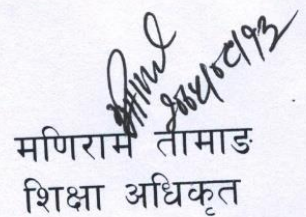 मणिराम तामाङ
शिक्षा अधिकृत